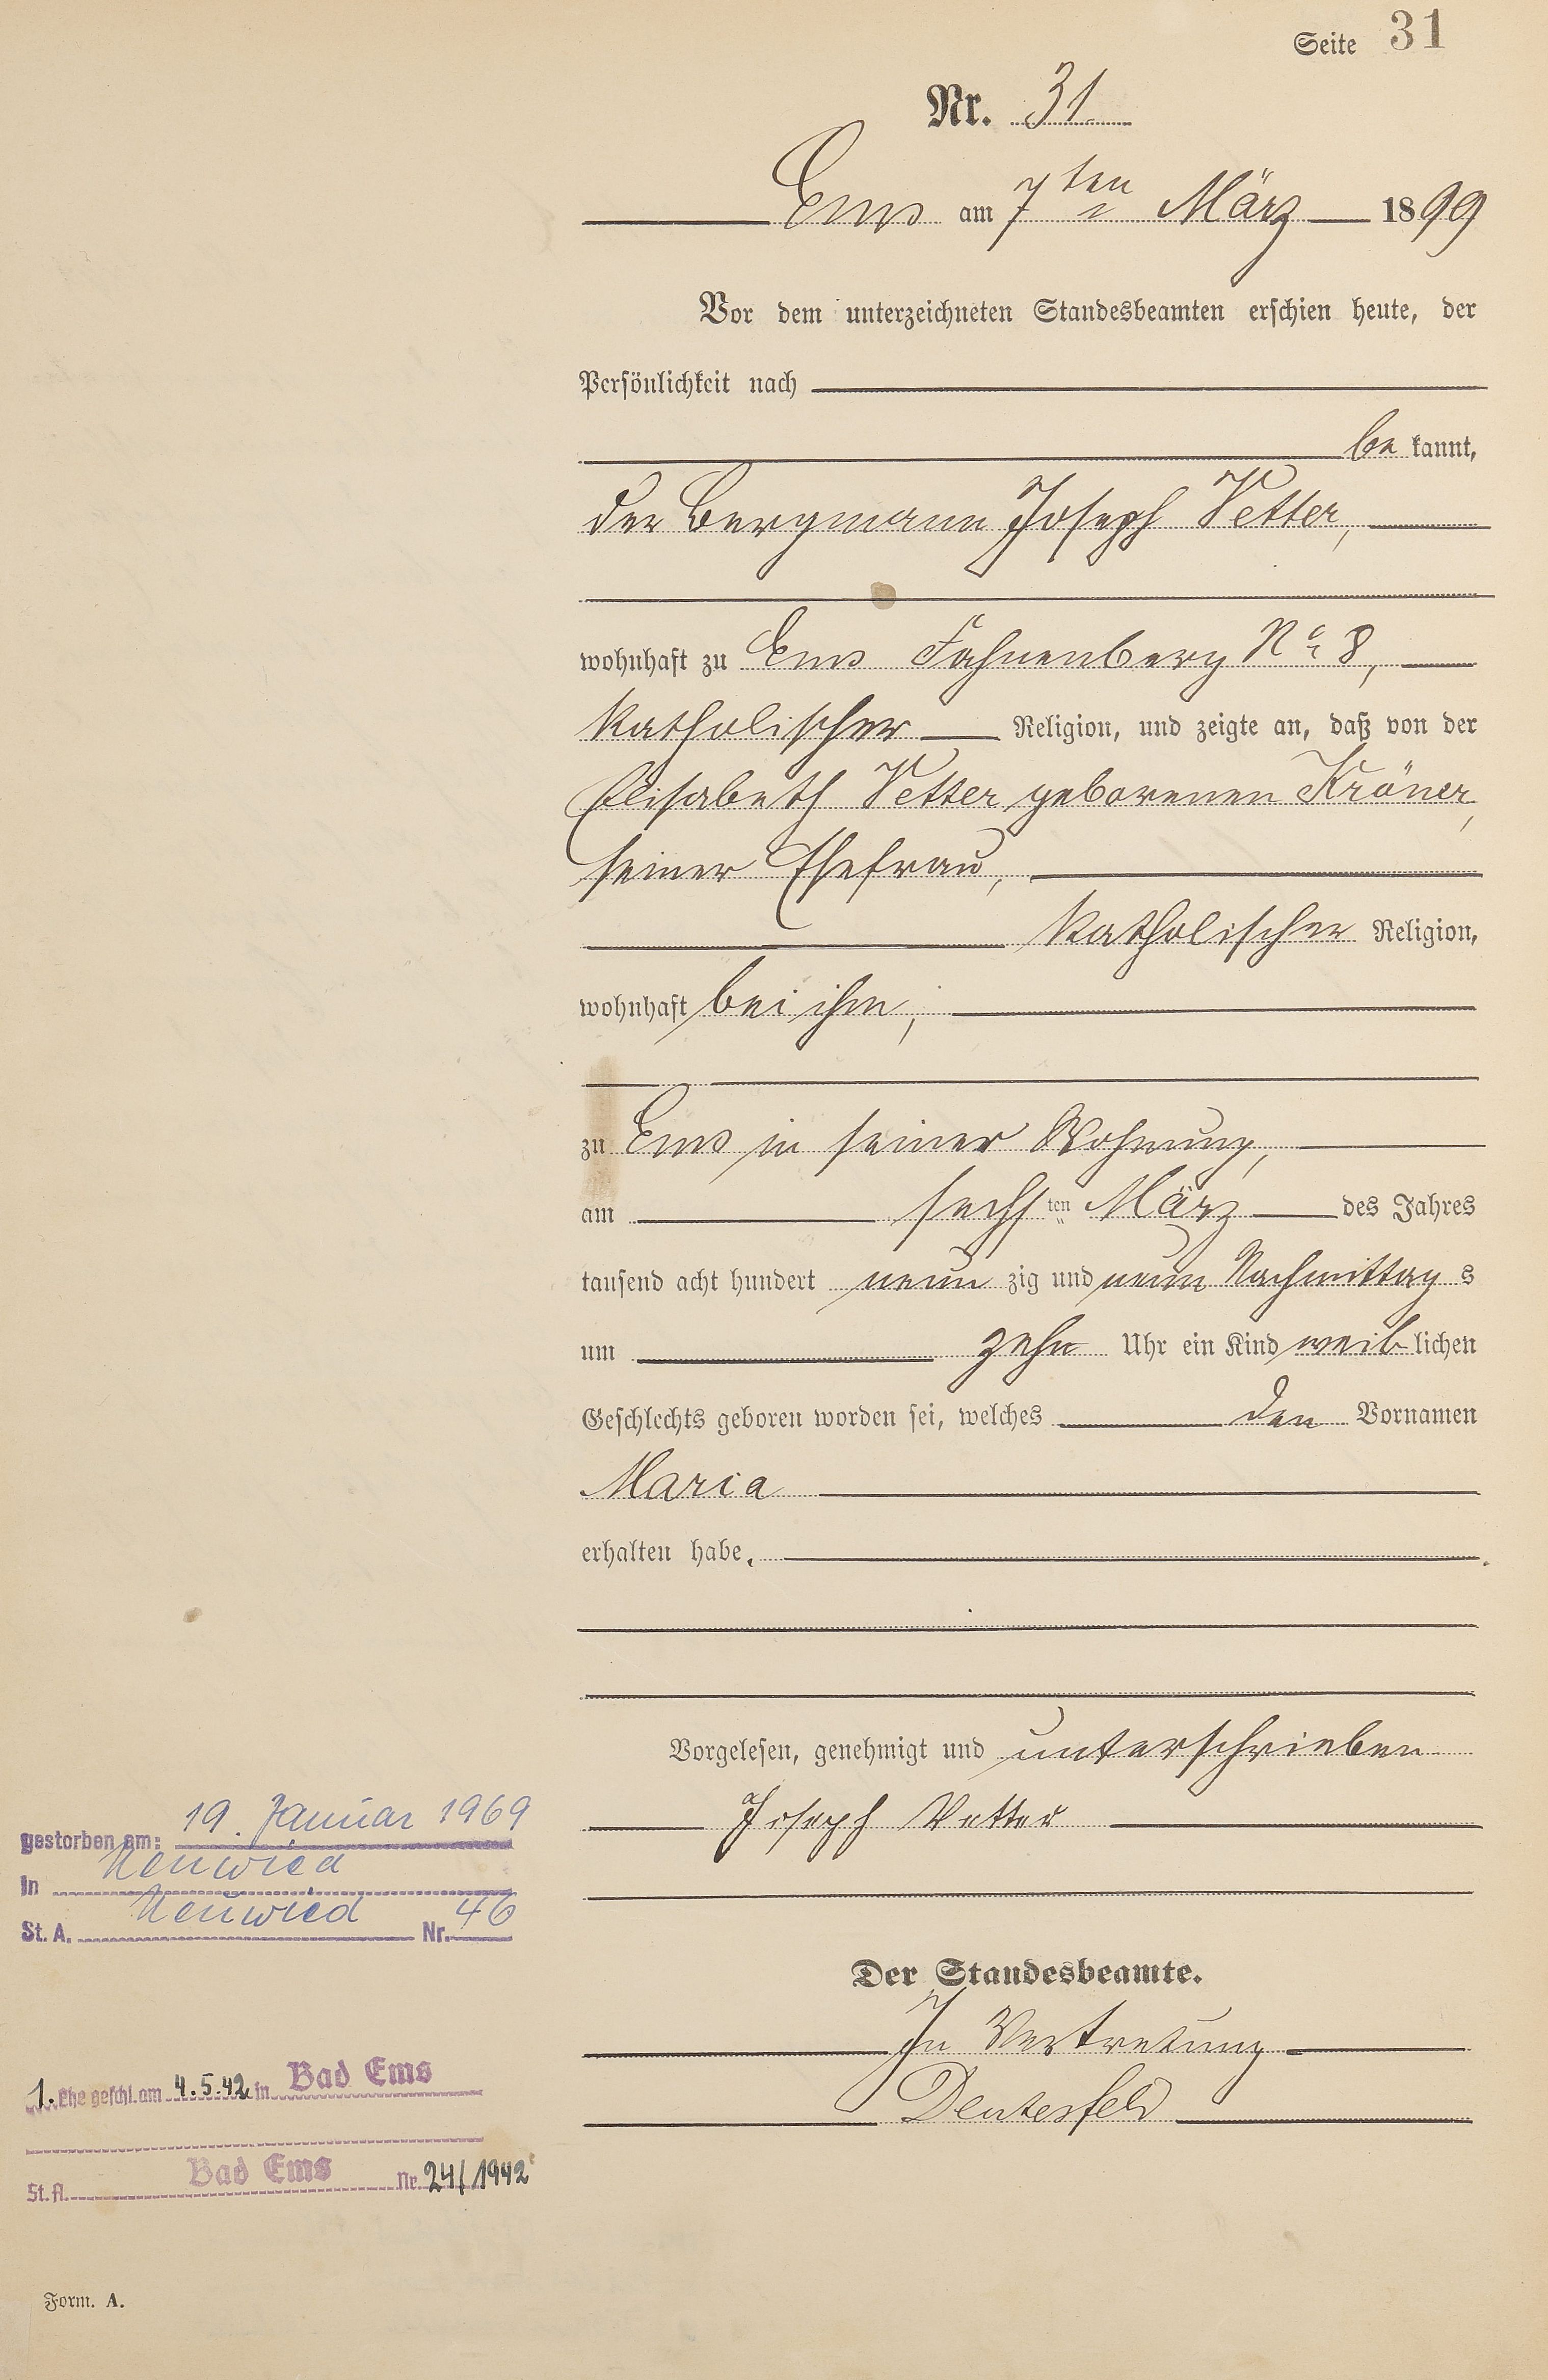 Seite 31
Nr. 31.
Ems am 7ten März 1899
Vor dem unterzeichneten Standesbeamten erschien heute, der
Persönlichkeit nach
be kannt,
der Bergmann Joseph Vetter,
wohnhaft zu Ems Fahnenberg No 8,
katholischer Religion, und zeigte an, daß von der
Elisabeth Vetter geborenen Kröner,
seiner Ehefrau,
katholischer Religion,
wohnhaft bei ihm,
zu Ems in seiner Wohnung,
am sechsten März des Jahres
tausend acht hundert neun zig und neun Nachmittag s
um zehn Uhr ein Kind weib lichen
Geschlechts geboren worden sei, welches den Vornamen
Maria
erhalten habe.
Vorgelesen, genehmigt und unterschrieben
Joseph Vetter
Der Standesbeamte.
In Vertretung
Deutesfeld
gestorben am: 19. Januar 1969
In Neuwied
St. A. Neuwied Nr. 46
1. Ehe geschl. am 4.5.42 in Bad Ems
St. A. Bad Ems Nr. 24/1942
Form. A.